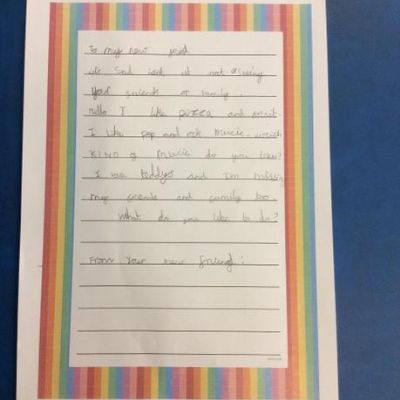 to my new
its sad isnt it not seeing
your friends or family.
Hello I like pizza and
I like pop and rock music. which
KIND of music do you like?
I love teddys and I'm missing
my friends and family too.
What do you like to do?
From your new friend!